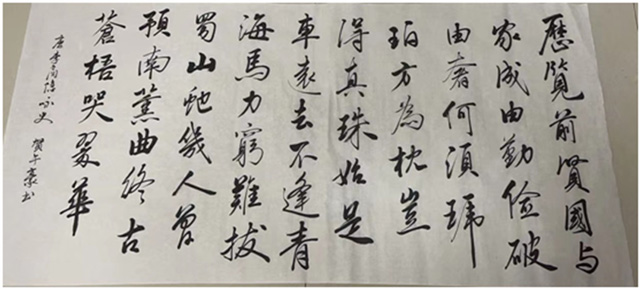 歷覽前賢國与
家成由勤儉破
由奢何須琥
珀方為枕豈
得真珠始是
車遠去不逢青
海馬力窮難拔
蜀山虵幾人曾
預南薰曲終古
蒼梧哭翠華
唐李商隐詠史 书